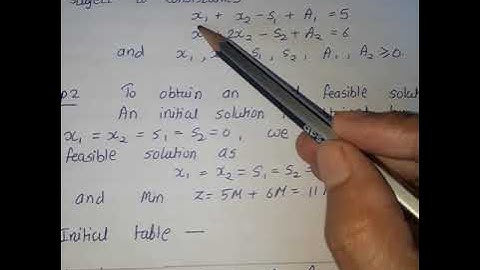 subject to constraints
x₁ + x₂ - S₁ + A₁ = 5
x 2x₂ - S₂ + A₂ = 6
and x₁, S₁, S₂, A₁, A₂ ≥ 0.
2 To obtain an feasible
An initial solution
x₁ = x₂ = S₁ = S₂ = 0, we
feasible solution as
x₁ = x₂ = S₁ = S₂ =
and Min Z = 5M + 6M = 11
Initial table —